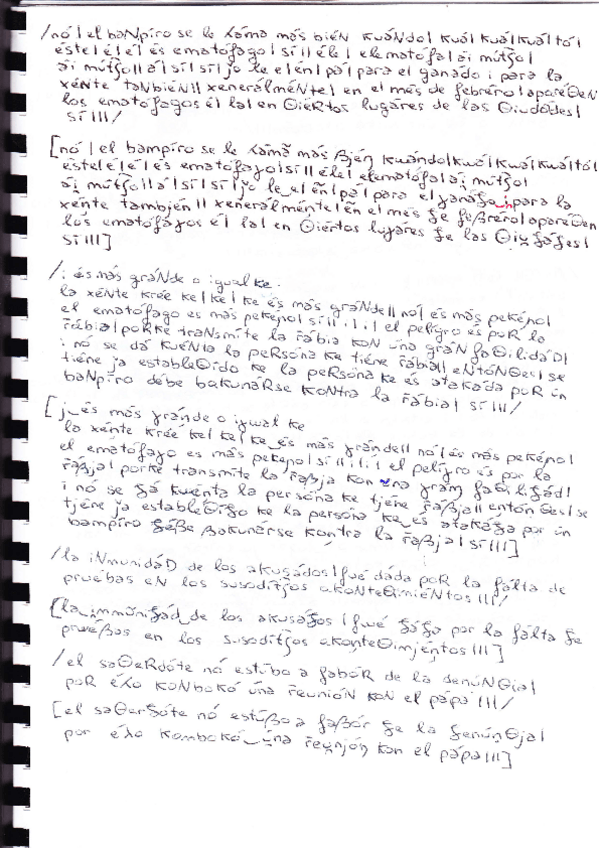 /nó|el baNpíro se le ʎáma más biéN kuáNdo|kuál kuál kuál tól
éste|él él|és ematófago|síl|él e|elematófal ái mútʃol
ái mútʃol|ál síl síl jo le él énl pál para el ganádo i para la
xéNte taNbiéNl|xeneɾálméNte|en el més de febréɾo|apaɾéΘeN
los ematófagos él lal en ΘiéRtos lugáɾes de las Θiudádes|
síl||/
[nó|el bampíro se le ʎáma más βjén kwándo|kuál kuál kuál tól
éste|él él|és ematófaɣo|síl|él e|elematófal ái mútʃol
ái mútʃol|ál síl síl jo le él énl pál para el ɣanáðo i para la
xénte tambjénl|xeneɾálménte|én el més ðe feβréɾo|apaɾéΘen
los ematófaɣos él lal en Θjéɾtos luɣáɾes ðe las Θiuðáðes|
síl||]
/i és más gránde o iguál ke
la xéNte krée kel kel ke és más gráNde|| nó|és más pekéɲol
el ematófago es más pekéɲol síl|.i.i.| el pelígɾo és poR la
r̄ábia|poRke traNsmíte la r̄ábia koN úna gráN faΘilidáD|
i nó se dá kuéNta la peRsóna ke tiéne r̄ábia|| eNtóNΘes| se
tiéne ja estableΘído ke la peRsóna ke és atakáda poR ún
baNpíro débe bakunáRse koNtra la r̄ábia| síl||/
[j és más ɣránde o iɣwál ke
la xénte kréé kel kel ke és más ɣránde|| nó|és más pekéɲol
el ematófaɣo es más pekéɲol síl|.i.i.| el pelíɣro és por la
r̄áβja| porke transmíte la r̄áβja kon úna ɣrán faΘiliðáð|
i nó se ðá kwénta la persóna ke tjéne r̄áβja|| entónΘes| se
tjéne ja estableΘíðo ke la persóna ke és atakáða por ún
bampíro ðéβe βakunárse kontra la r̄áβja| síl||]
/la iNmunidáD de los akusádos|fué dáda poR la fálta de
pruébas eN los susodítʃos akoNteΘimiéNtos|||/
[la immuniðáð de los akusáðos|fwé ðáða por la fálta ðe
prwéβas en los susodítʃos akonteΘimjéntos|||]
/el saΘeRdóte nó estúbo a fabóR de la denúNΘia|
poR éʎo koNbokó úna r̄eunióN koN el pápa|||/
[el saΘerðóte nó estúβo a faβór ðe la ðenúnΘja|
por éʎo kombokó úna r̄eunjón kon el pápa|||]